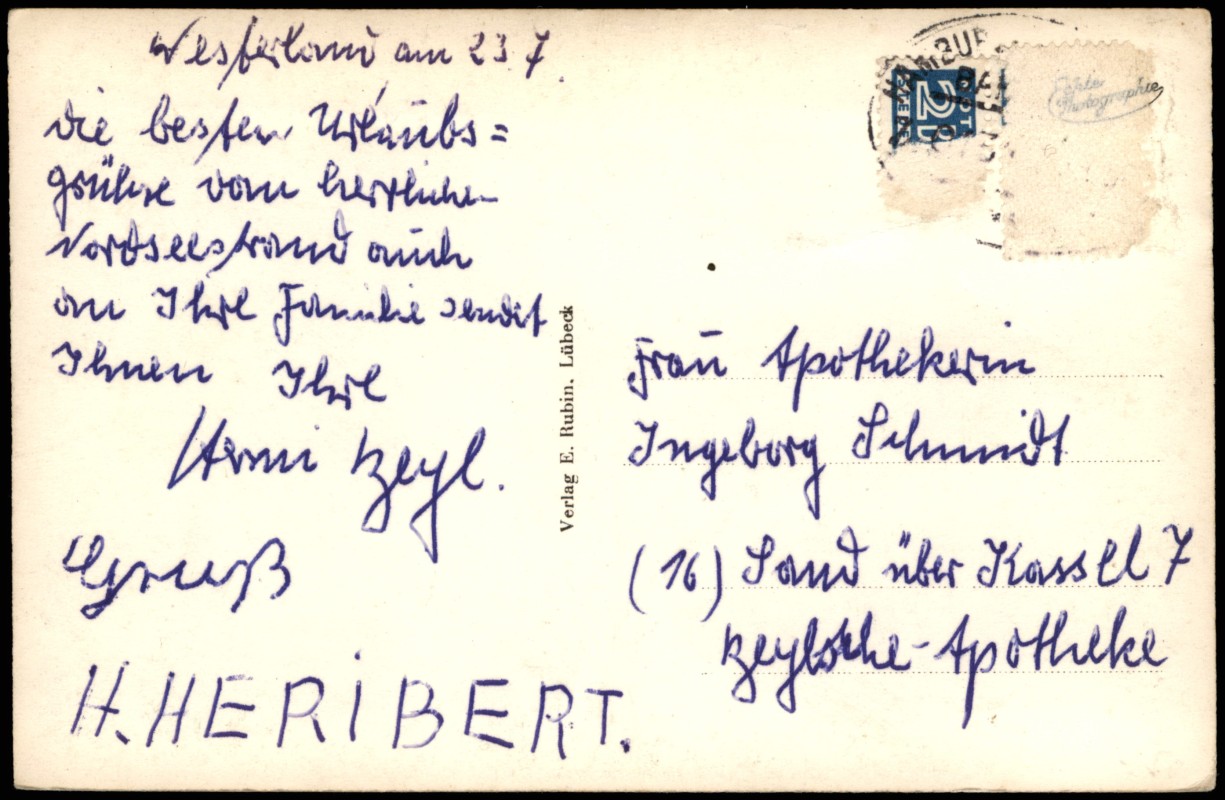 Westerland am 23.7.
die besten Urlaubs=
grüße vom herrlichen
Nordseestrand auch
an Ihre Familie sendet
Ihnen Ihre
Heyl.
Gruß
H. HERIBERT.
Verlag E. Rubin, Lübeck
HAMBUR
2
Echte
Photographie
Frau Apothekerin
Ingeborg Schmidt
(16) Sand über Kassel 7
Heylsche-Apotheke